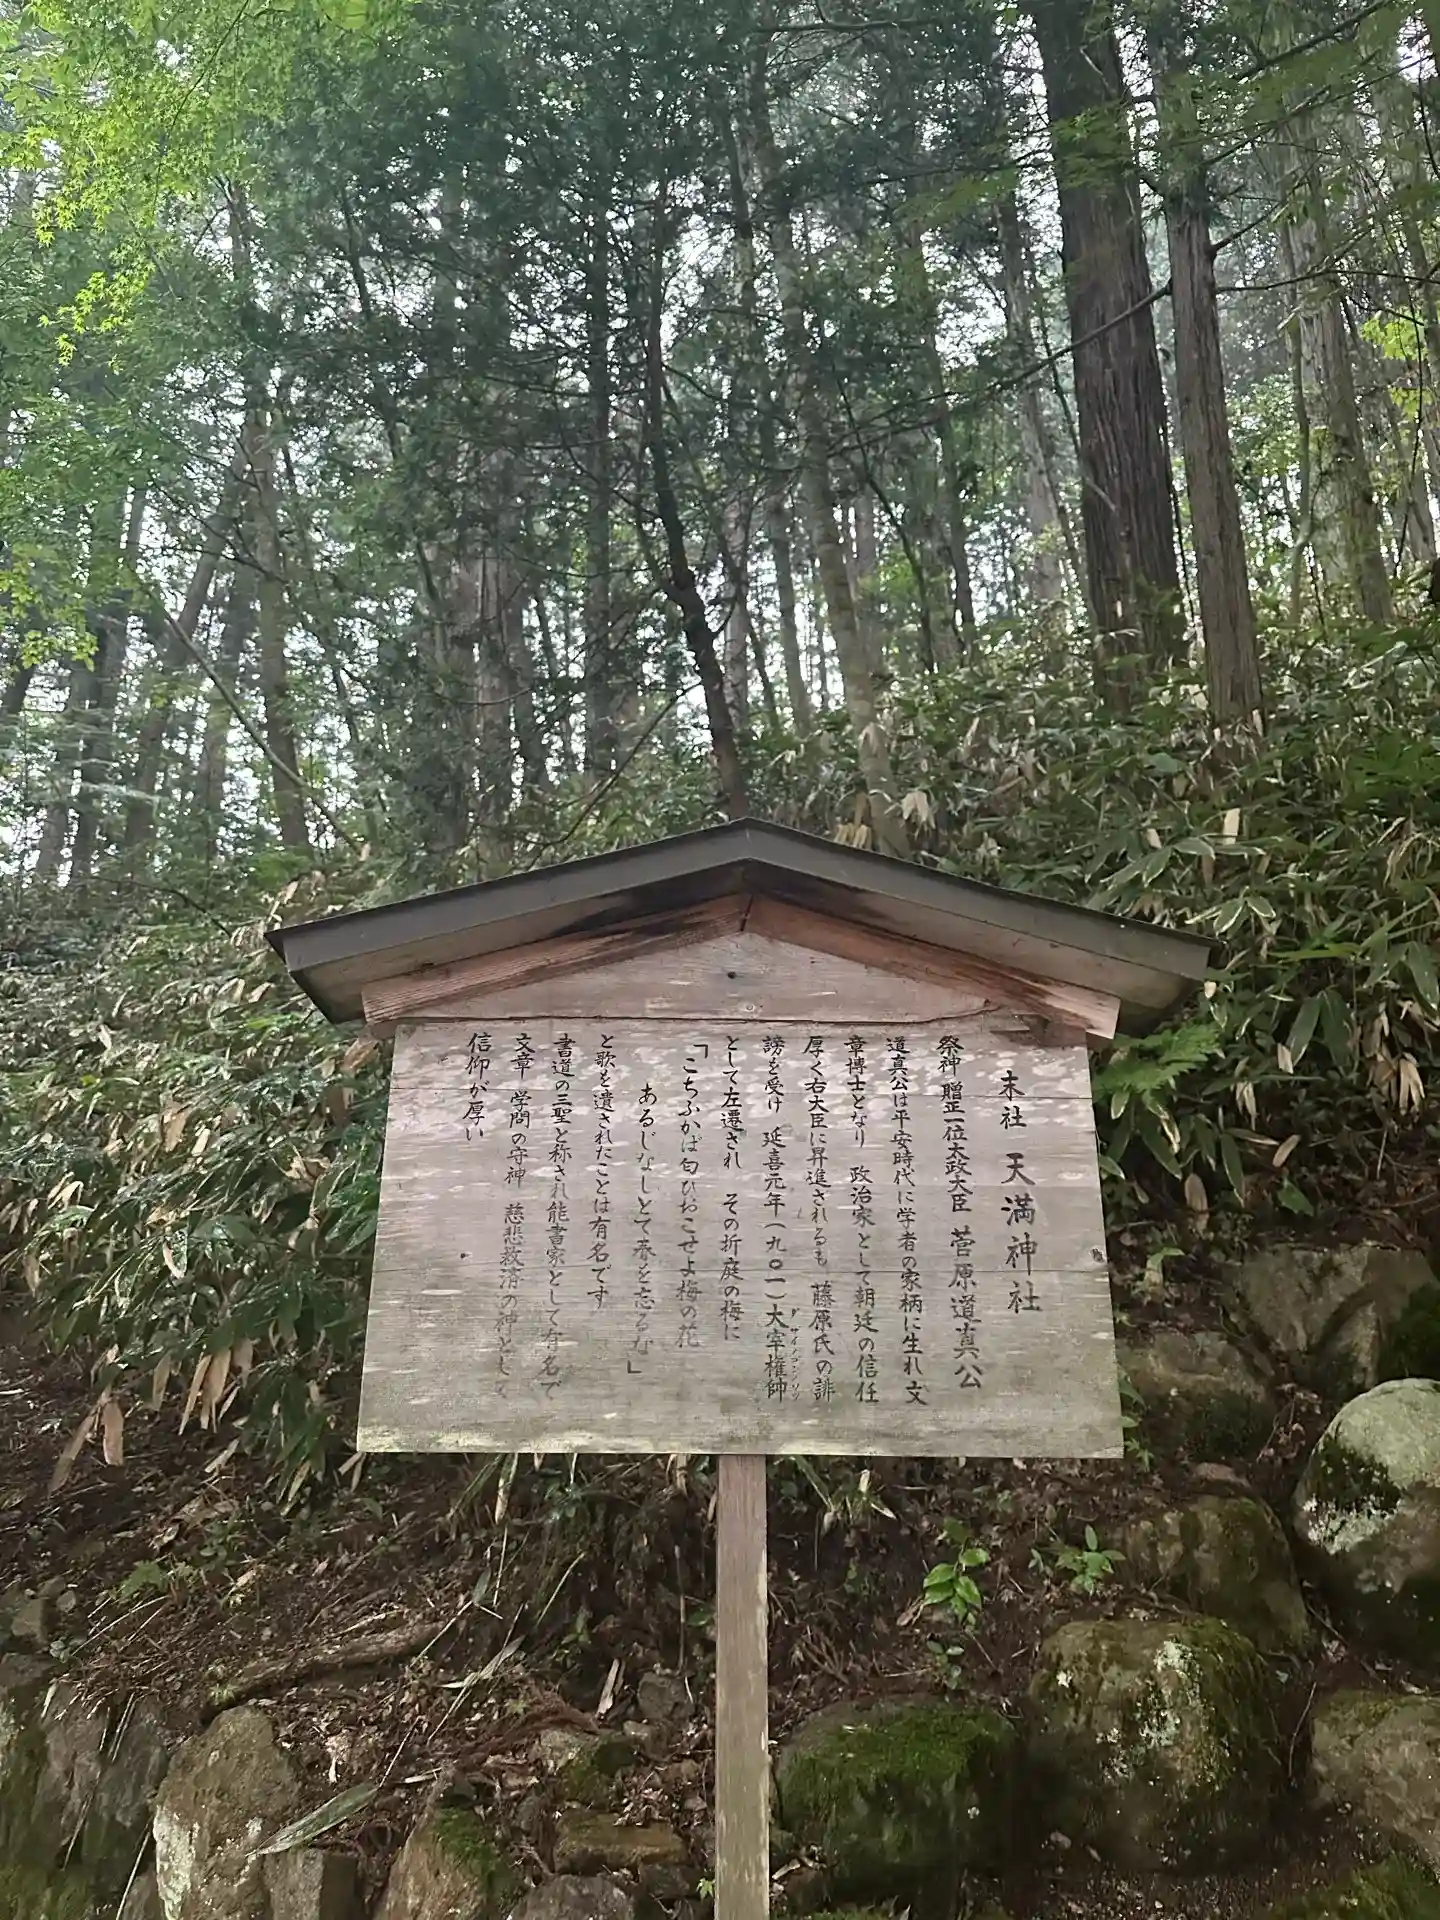 末社 天満神社
祭神 贈正一位太政大臣 菅原道真公
道真公は平安時代に学者の家柄に生れ文
章博士となり 政治家として朝廷の信任
厚く右大臣に昇進されるも 藤原氏の誹
謗を受け 延喜元年(九〇一)大宰権帥
ダザイノゴンノソツ
として左遷され その折庭の梅に
「こちふかば匂ひおこせよ梅の花
あるじなしとて春を忘るな」
と歌を遺されたことは有名です
書道の三聖と称され能書家として有名で
文章 学問の守神 慈悲救済の神として
信仰が厚い